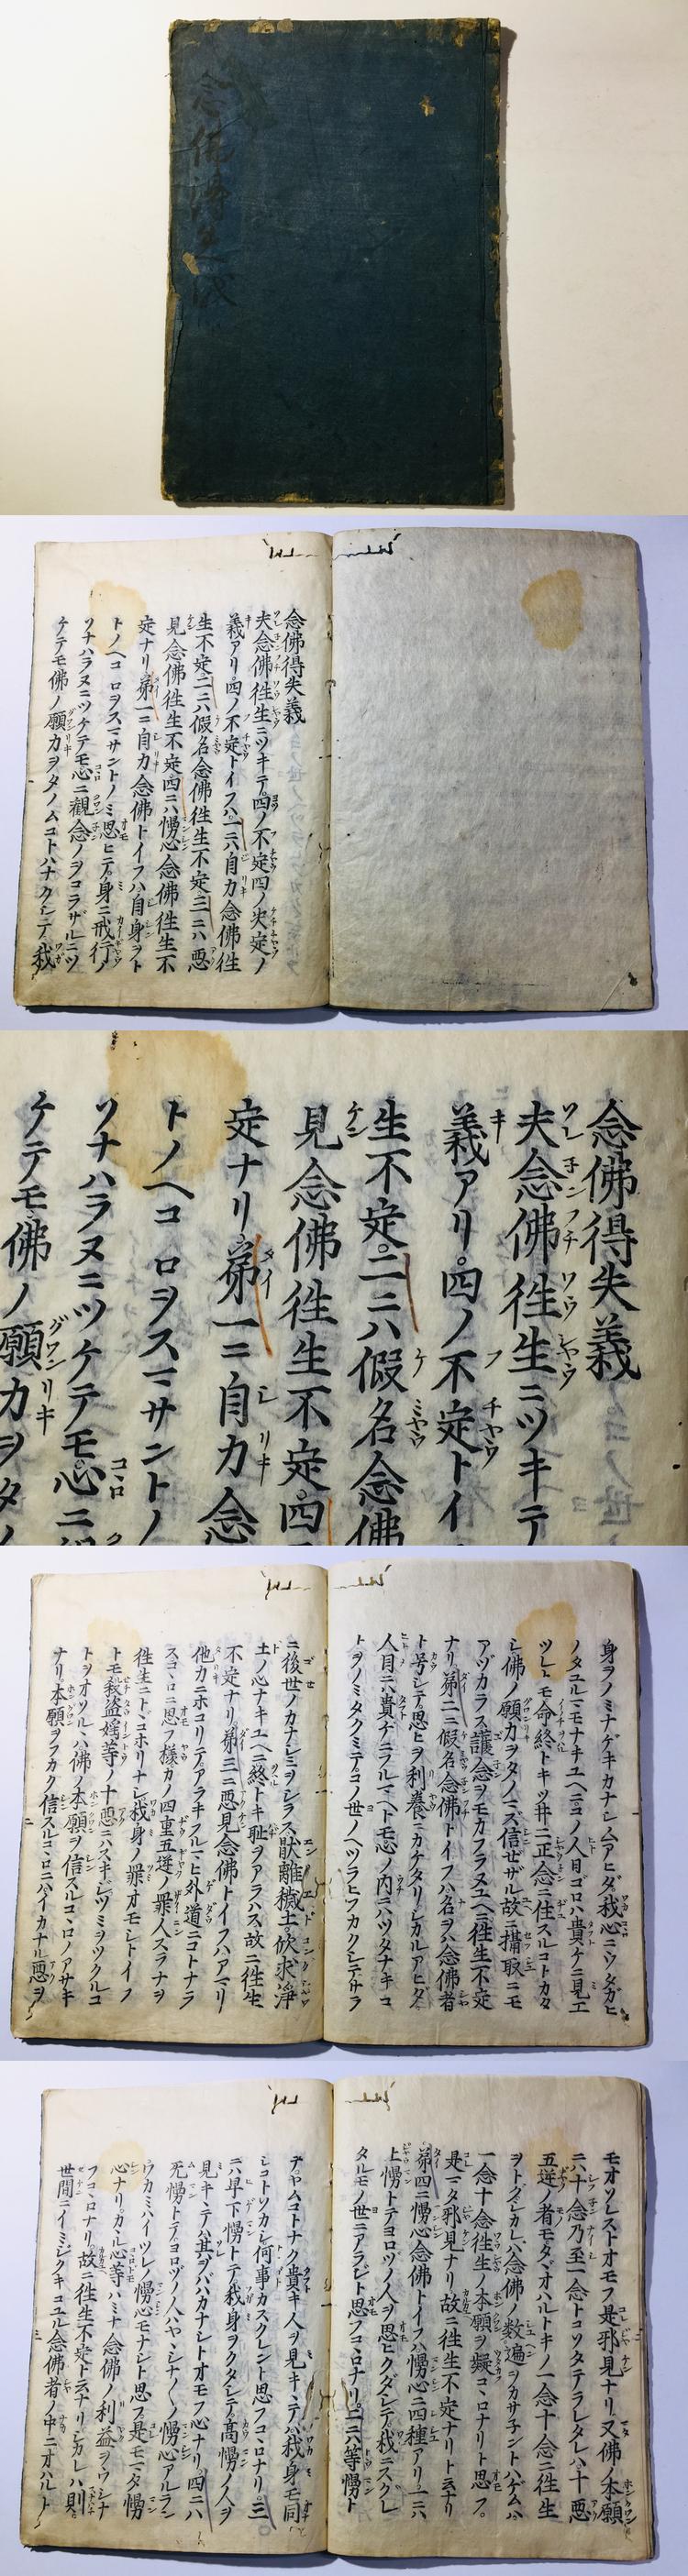 念佛得失義
夫念佛往生ニツキテ四ノ不定四ノ決定ノ
義アリ四ノ不定トイフハ一ニハ自力念佛往
生不定二ニハ假名念佛往生不定三ニハ悪
見念佛往生不定四ニハ憍心念佛往生不
定ナリ第一ニ自力念佛トイフハ自身ヲト
トノヘコロヲスマサントノミ思ヒテ身ニ戒行ノ
ソナハラヌニツケテモ心ニ觀念ノヲコラザルニツ
ケテモ佛ノ願力ヲタノムコトハナクシテ我
念佛得失義
夫念佛往生ニツキテ
義アリ四ノ不定トイ
生不定二ニハ假名念佛
見念佛往生不定四
定ナリ第一ニ自力念
トノヘコロヲスマサントノ
ソナハラヌニツケテモ心ニ
ケテモ佛ノ願力ヲタ
身ヲノミナゲキカナシムアヒダ我心ニシタガヒ
ノタユルマモナキユヘニコノ人目ゴロハ貴ケニ見エ
ツレトモ命終トキツ井ニ正念ニ住スルコトカタ
シ佛ノ願力ヲタノマズ信ゼザル故ニ攝取ニモ
アヅカラス護念ヲモカフラヌユヘニ往生不定
ナリ第二ニ假名念佛トイフハ名ヲハ念佛者
ト号シテ思ヒヲ利養ニカケタリシカルアヒダ
人目ニハ貴ゲニフルマヘトモ心ノ内ニハツタナキコ
トヲノミタクミテコノ世ノヘツラヒフカクシテサラ
ニ後世ノカナシミヲシラス猒離穢土欣求淨
土ノ心ナキユヘニ終トキ恥ヲアラハス故ニ往生
不定ナリ第三ニ悪見念佛トイフハアマリ
他力ニホコリテアラキフルマヒ外道ニコトナラ
スコヽロニ思ノ様カノ四重五逆ノ罪人スラナヲ
往生ニトヾコホリナシ我身ノ罪オモシトイフ
トモ殺盗婬等ノ十悪ニハスキジツミヲツクルコ
トヲオソルヽハ佛ノ本願ヲ信スルコヽロノアサキ
ナリ本願ヲフカク信スルコヽロニハイカナル悪ヲ
モオソレストオモフ是邪見ナリ又佛ノ本願
ニハ十念乃至一念トコソタテラレタレハ十悪
五逆ノ者モタヾオハルトキノ一念十念ニ往生
ヲトグシカレハ念佛ノ数遍ヲカサネントハゲムハ
一念十念往生ノ本願ヲ疑コヽロナリト思フ
是マタ邪見ナリ故ニ往生不定ナリト云ナリ
第四ニ憍心念佛トイフハ憍心ニ四種アリ一ニハ
上憍トテヨロヅノ人ヲ思ヒクダシテ我ニスグレ
タルモノ世ニアラジト思フコヽロナリ二ニハ等憍ト
テヤムコトナク貴キ人ヲ見キヽテハ我身モ同
シコトソカシ何事カスクレント思フコヽロナリ三
ニハ卑下憍トテ我身ヲクタシテ高憍ノ人ヲ
見キヽテハ其ヲバカナシトオモフ心ナリ四ニハ
死憍トテヨロヅノ人ハヤシナノ〱ノ憍心アルラン
ワカミハイツレノ憍心モナシト思フ是モマタ憍
心ナリカヽル心等ハミナ念佛ノ利益ヲウシナ
フコヽロナリ故ニ往生不定ト云ナリシカレハ則
世間ニイミジクキコユル念佛者ノ中ニオハルト